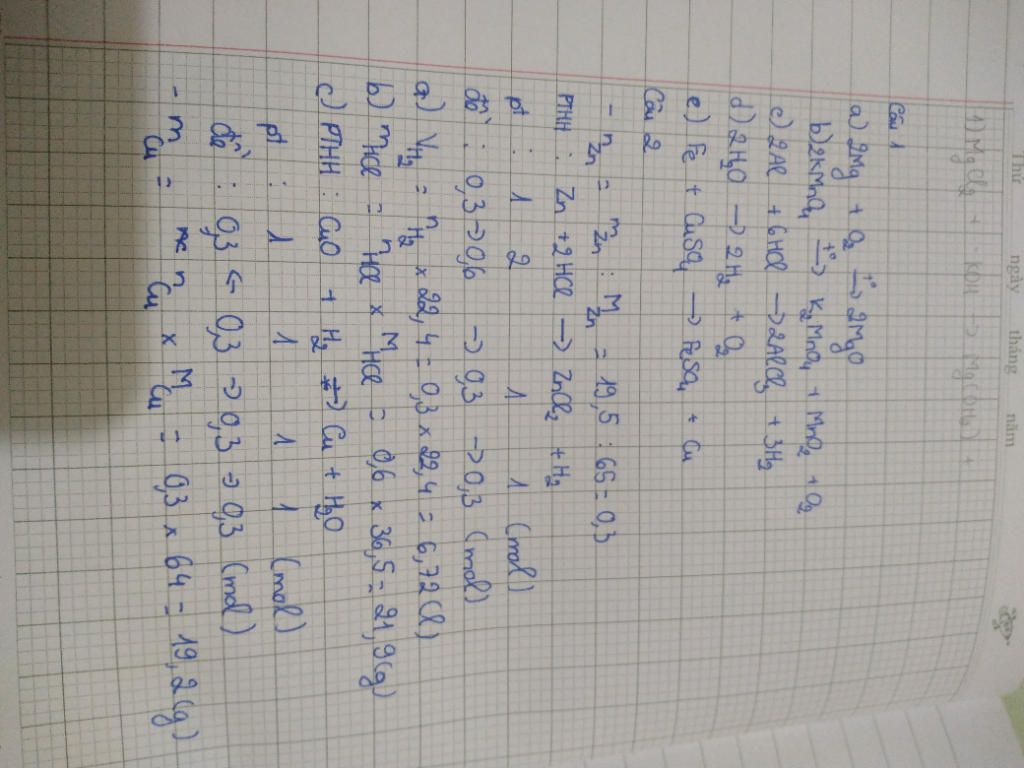 Thứ ngày tháng năm
Câu 1
a) 2Mg + O₂ —t°→ 2MgO
b) 2KMnO₄ —t°→ K₂MnO₄ + MnO₂ + O₂
c) 2Al + 6HCl → 2AlCl₃ + 3H₂
d) 2H₂O → 2H₂ + O₂
e) Fe + CuSO₄ → FeSO₄ + Cu
Câu 2
- nZn = mZn : MZn = 19,5 : 65 = 0,3
PTHH : Zn + 2HCl → ZnCl₂ + H₂
pt : 1 2 1 1 (mol)
đề : 0,3 → 0,6 → 0,3 → 0,3 (mol)
a) VH₂ = nH₂ x 22,4 = 0,3 x 22,4 = 6,72 (l)
b) mHCl = nHCl x MHCl = 0,6 x 36,5 = 21,9 (g)
c) PTHH : CuO + H₂ → Cu + H₂O
pt : 1 1 1 1 (mol)
đề : 0,3 ← 0,3 → 0,3 → 0,3 (mol)
- mCu = nCu x MCu = 0,3 x 64 = 19,2 (g)